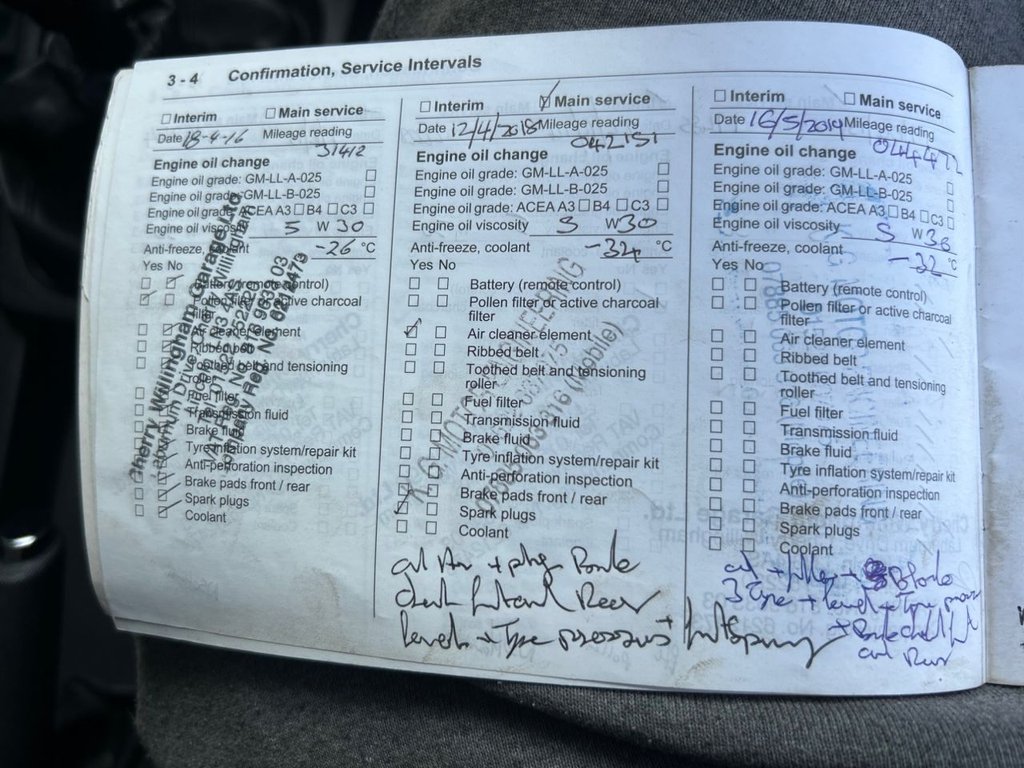 3 - 4 Confirmation, Service Intervals
☐ Interim ☐ Main service
Date 18-4-16 Mileage reading
31412
Engine oil change
Engine oil grade: GM-LL-A-025 ☐
Engine oil grade: GM-LL-B-025 ☐
Engine oil grade: ACEA A3 ☐ B4 ☐ C3 ☐
Engine oil viscosity 5 W 30
Anti-freeze, coolant -26 °C
Yes No
Battery (remote control)
Pollen filter or active charcoal
filter
Air cleaner element
Ribbed belt
Toothed belt and tensioning
roller
Fuel filter
Transmission fluid
Brake fluid
Tyre inflation system/repair kit
Anti-perforation inspection
Brake pads front / rear
Spark plugs
Coolant
Cherry Willingham Garage Ltd
☐ Interim ☑ Main service
Date 12/4/2018 Mileage reading
042151
Engine oil change
Engine oil grade: GM-LL-A-025 ☐
Engine oil grade: GM-LL-B-025 ☐
Engine oil grade: ACEA A3 ☐ B4 ☐ C3 ☐
Engine oil viscosity 5 W 30
Anti-freeze, coolant -34 °C
Yes No
Battery (remote control)
Pollen filter or active charcoal
filter
Air cleaner element
Ribbed belt
Toothed belt and tensioning
roller
Fuel filter
Transmission fluid
Brake fluid
Tyre inflation system/repair kit
Anti-perforation inspection
Brake pads front / rear
Spark plugs
Coolant
(Mobile)
Rear
levels + Tyre pressures +
☐ Interim ☐ Main service
Date 16/5/2019 Mileage reading
044472
Engine oil change
Engine oil grade: GM-LL-A-025 ☐
Engine oil grade: GM-LL-B-025 ☐
Engine oil grade: ACEA A3 ☐ B4 ☐ C3 ☐
Engine oil viscosity 5 W 30
Anti-freeze, coolant -32 °C
Yes No
Battery (remote control)
Pollen filter or active charcoal
filter
Air cleaner element
Ribbed belt
Toothed belt and tensioning
roller
Fuel filter
Transmission fluid
Brake fluid
Tyre inflation system/repair kit
Anti-perforation inspection
Brake pads front / rear
Spark plugs
Coolant
3 Tyre + levels + Tyre pressures
and Rear